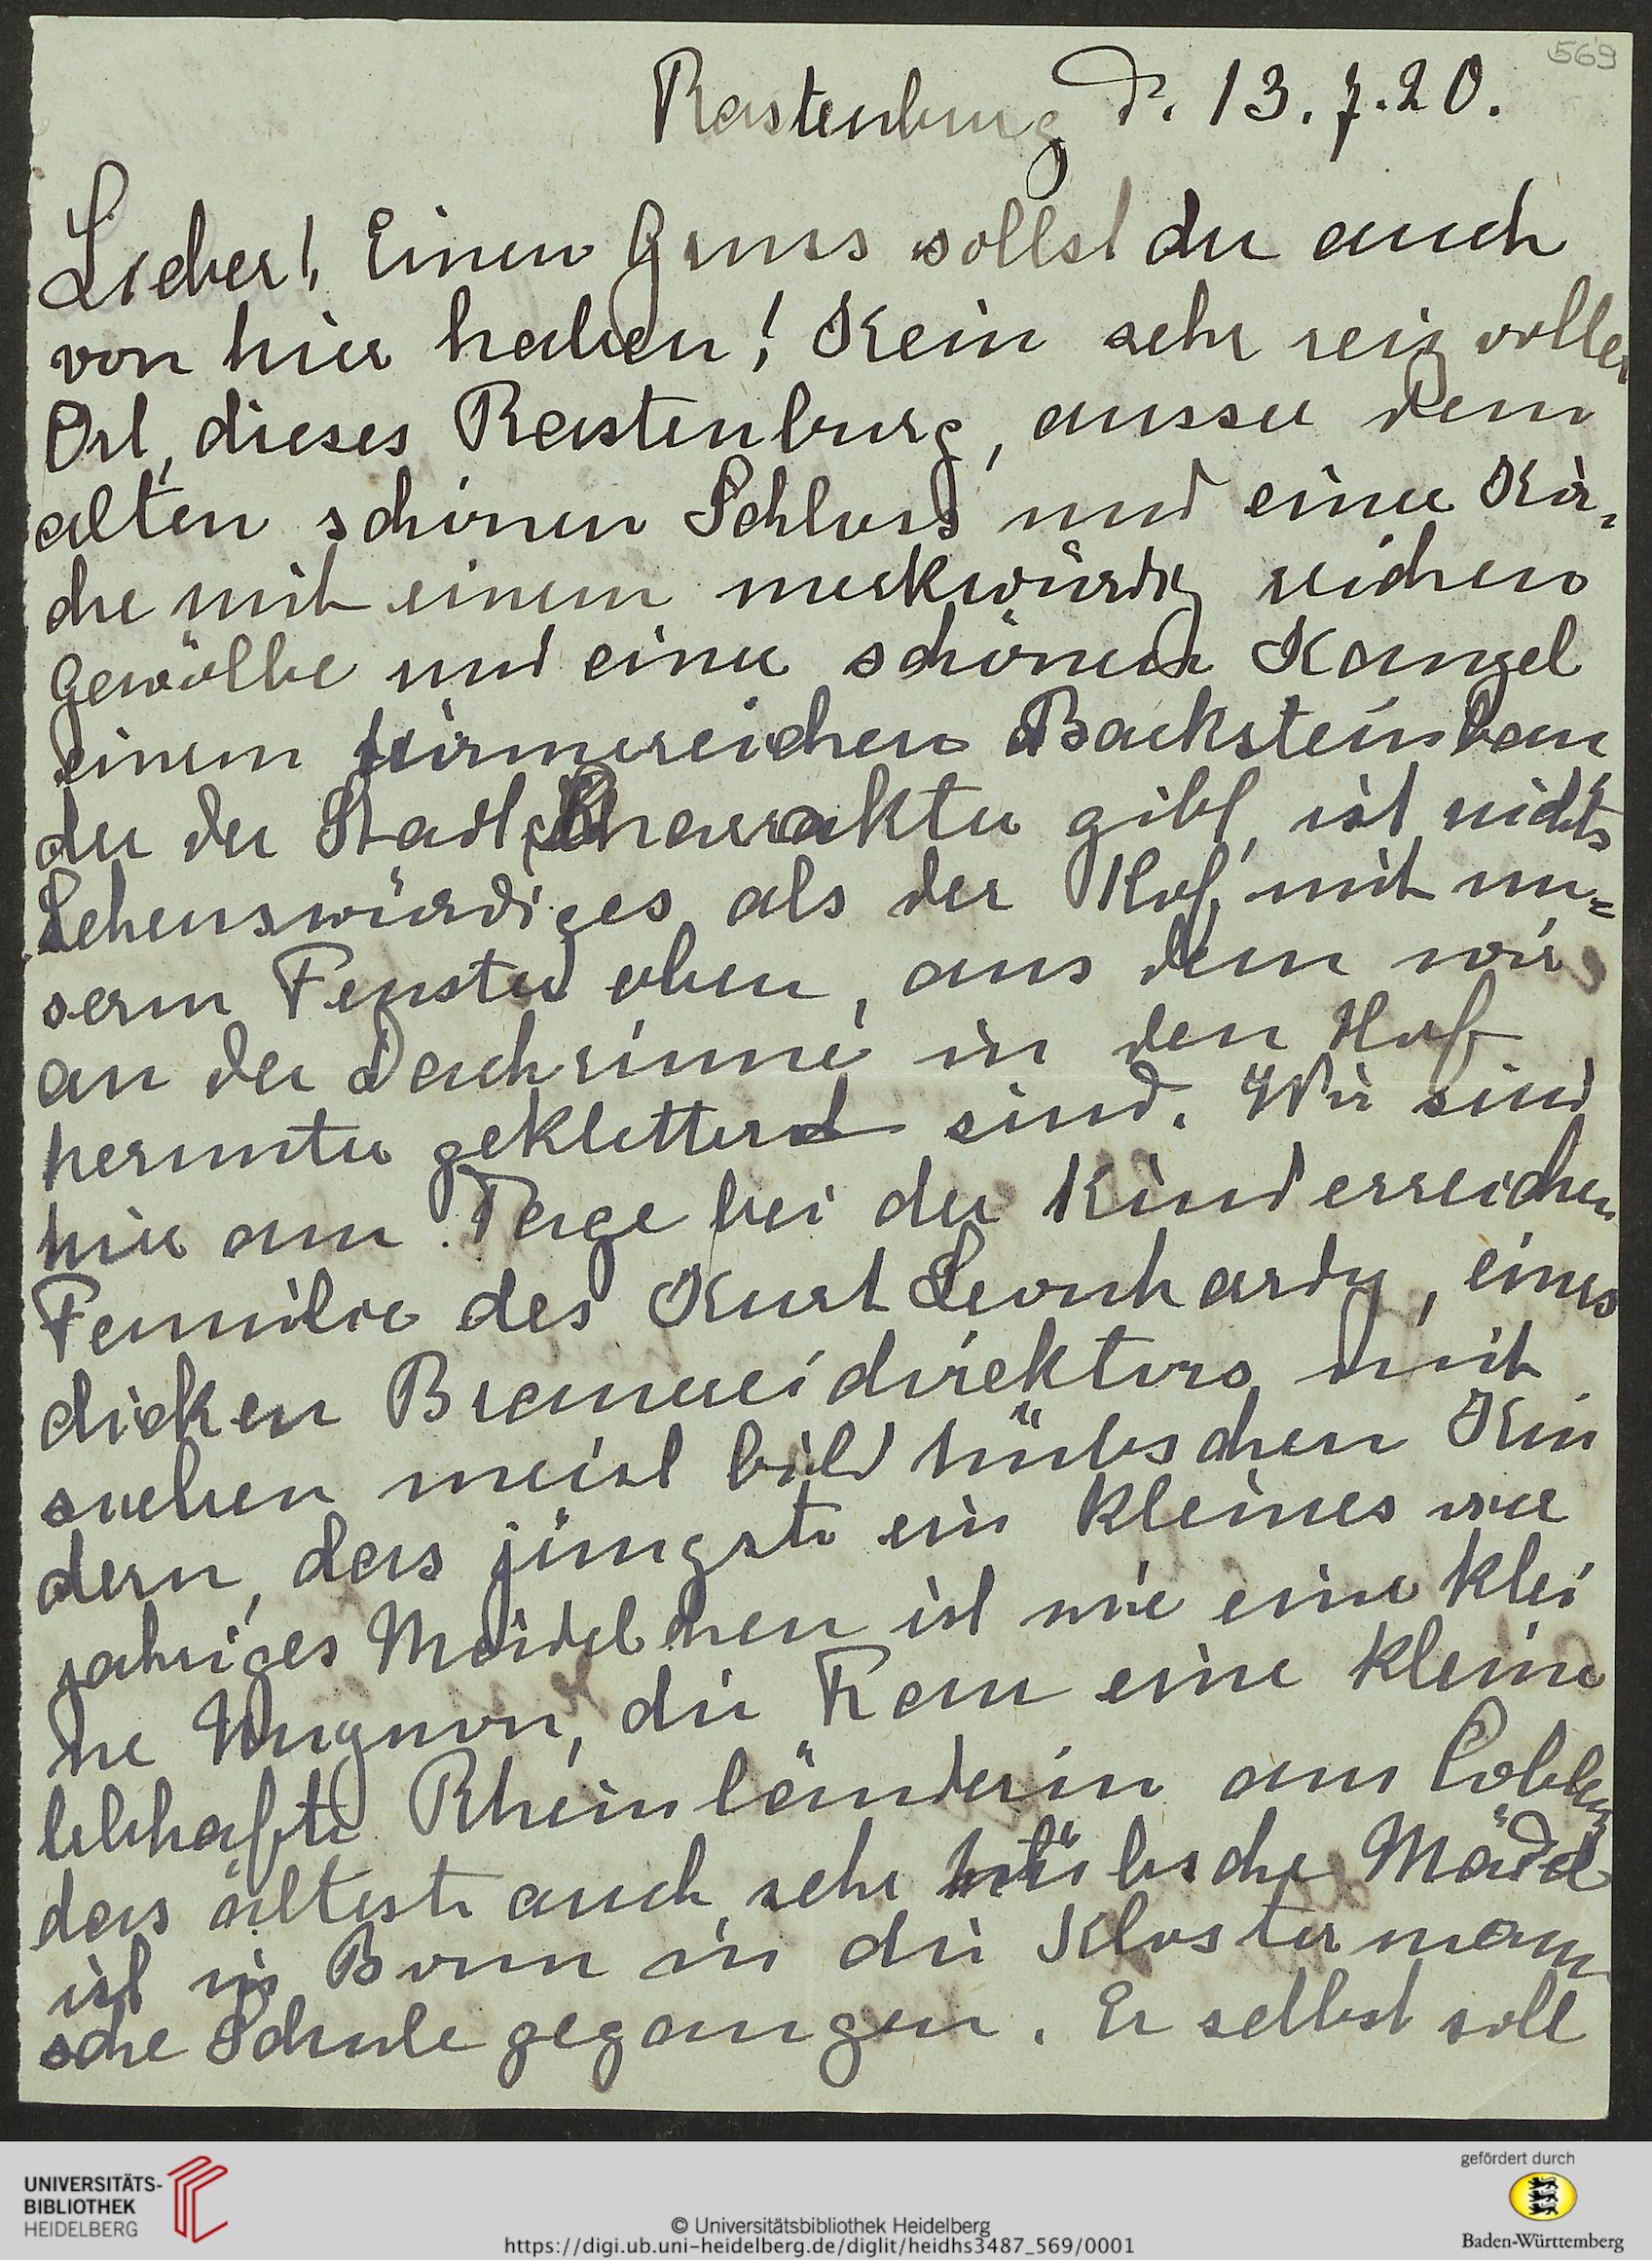 569
Rastenburg d. 13.7.20.
Lieber! Einen Gruss sollst du auch
von hier haben! Kein sehr reizvoller
Ort, dieses Rastenburg, ausser dem
alten schönen Schloss und einer Kir-
che mit einem merkwürdig reichen
Gewölbe und einer schönen Kanzel
einem türmereichen Backsteinbau
der der Stadt Charakter gibt, ist nichts
Sehenswürdiges als der Hof, mit un=
serm Fenster oben, aus dem wir
an der Dachrinne in den Hof
herunter geklettert sind. Wir sind
hier am Tage bei der Kinderreichen
Familie des Kurt Leonhardy, eines
dicken Brauereidirektors mit
sieben meist bildhübschen Kin
dern, das jüngste ein kleines vier
jähriges Mädelchen ist wie eine klei
ne Mignon, die Frau eine kleine
lebhafte Rheinländerin aus Coblenz
das älteste auch sehr hübsche Mädel
ist in Bonn in die Klostermann
sche Schule gegangen. Er selbst soll
UNIVERSITÄTS-
BIBLIOTHEK
HEIDELBERG
© Universitätsbibliothek Heidelberg
https://digi.ub.uni-heidelberg.de/diglit/heidhs3487_569/0001
gefördert durch
Baden-Württemberg